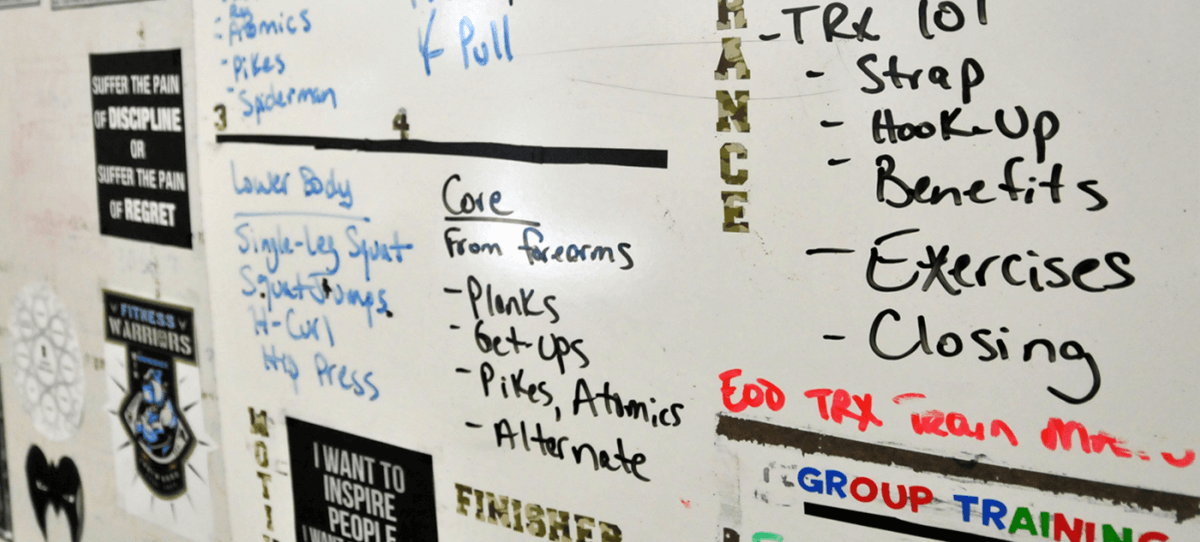 Atomics
- Pikes
- Spiderman
Pull
3
4
SUFFER THE PAIN
OF DISCIPLINE
OR
SUFFER THE PAIN
OF REGRET
FITNESS
WARRIORS
Lower Body
Single-Leg Squat
Squat Jumps
H-Curl
Hip Press
Core
From forearms
- Planks
- Get-ups
- Pikes, Atomics
- Alternate
MOTI
I WANT TO
INSPIRE
PEOPLE
FINISHER
RANCE
- TRX 101
- Strap
- Hook-Up
- Benefits
- Exercises
- Closing
EOD TRX Train
GROUP TRAINING